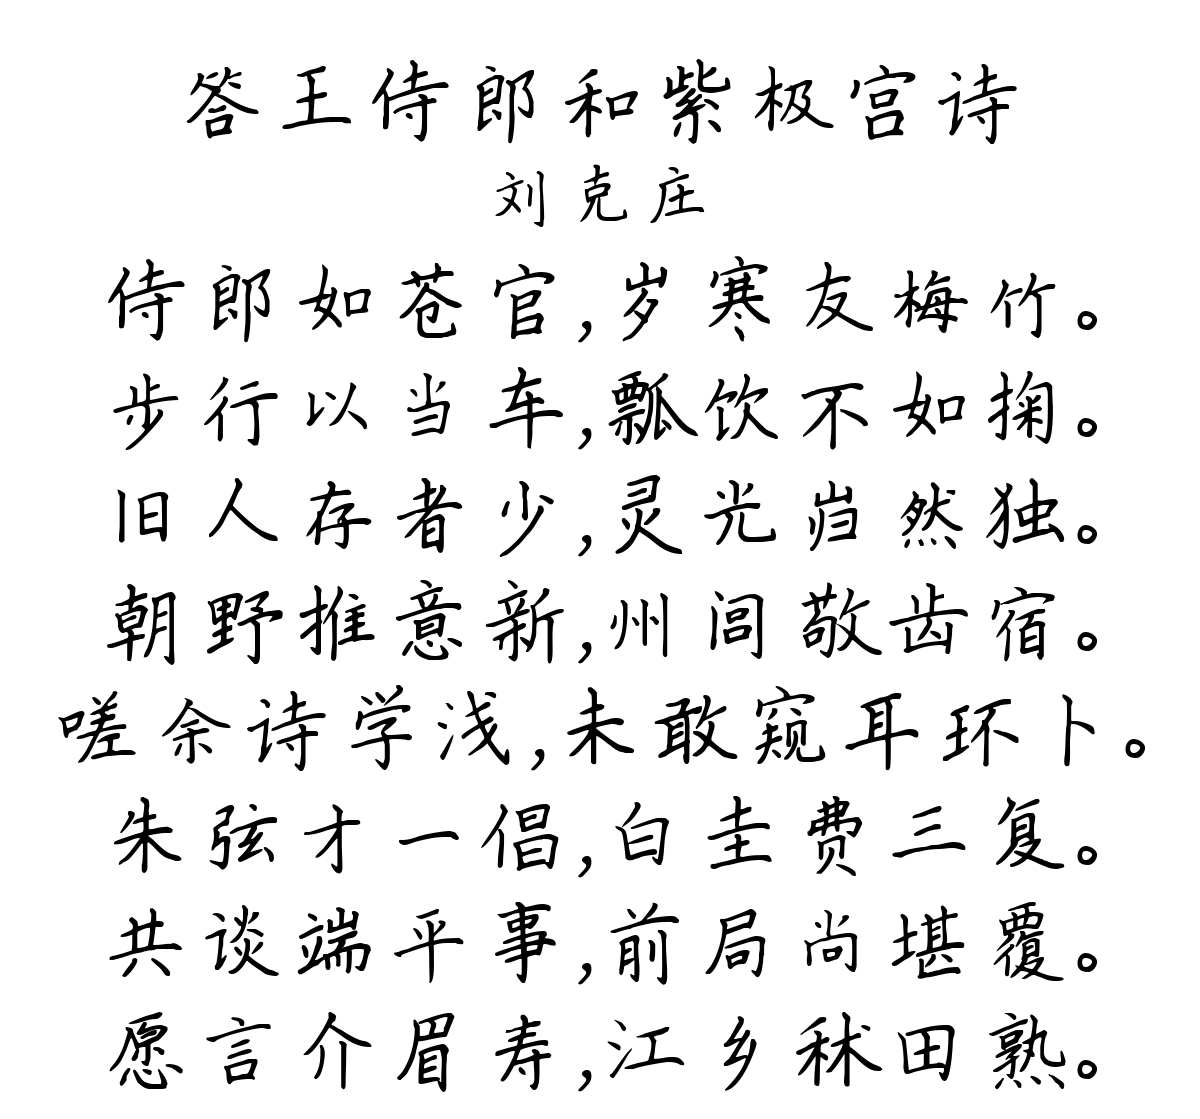 答王侍郎和紫极宫诗
刘克庄
侍郎如苍官,岁寒友梅竹。
步行以当车,瓢饮不如掬。
旧人存者少,灵光岿然独。
朝野推意新,州闾敬齿宿。
嗟余诗学浅,未敢窥耳环卜。
朱弦才一倡,白圭费三复。
共谈端平事,前局尚堪覆。
愿言介眉寿,江乡秫田熟。